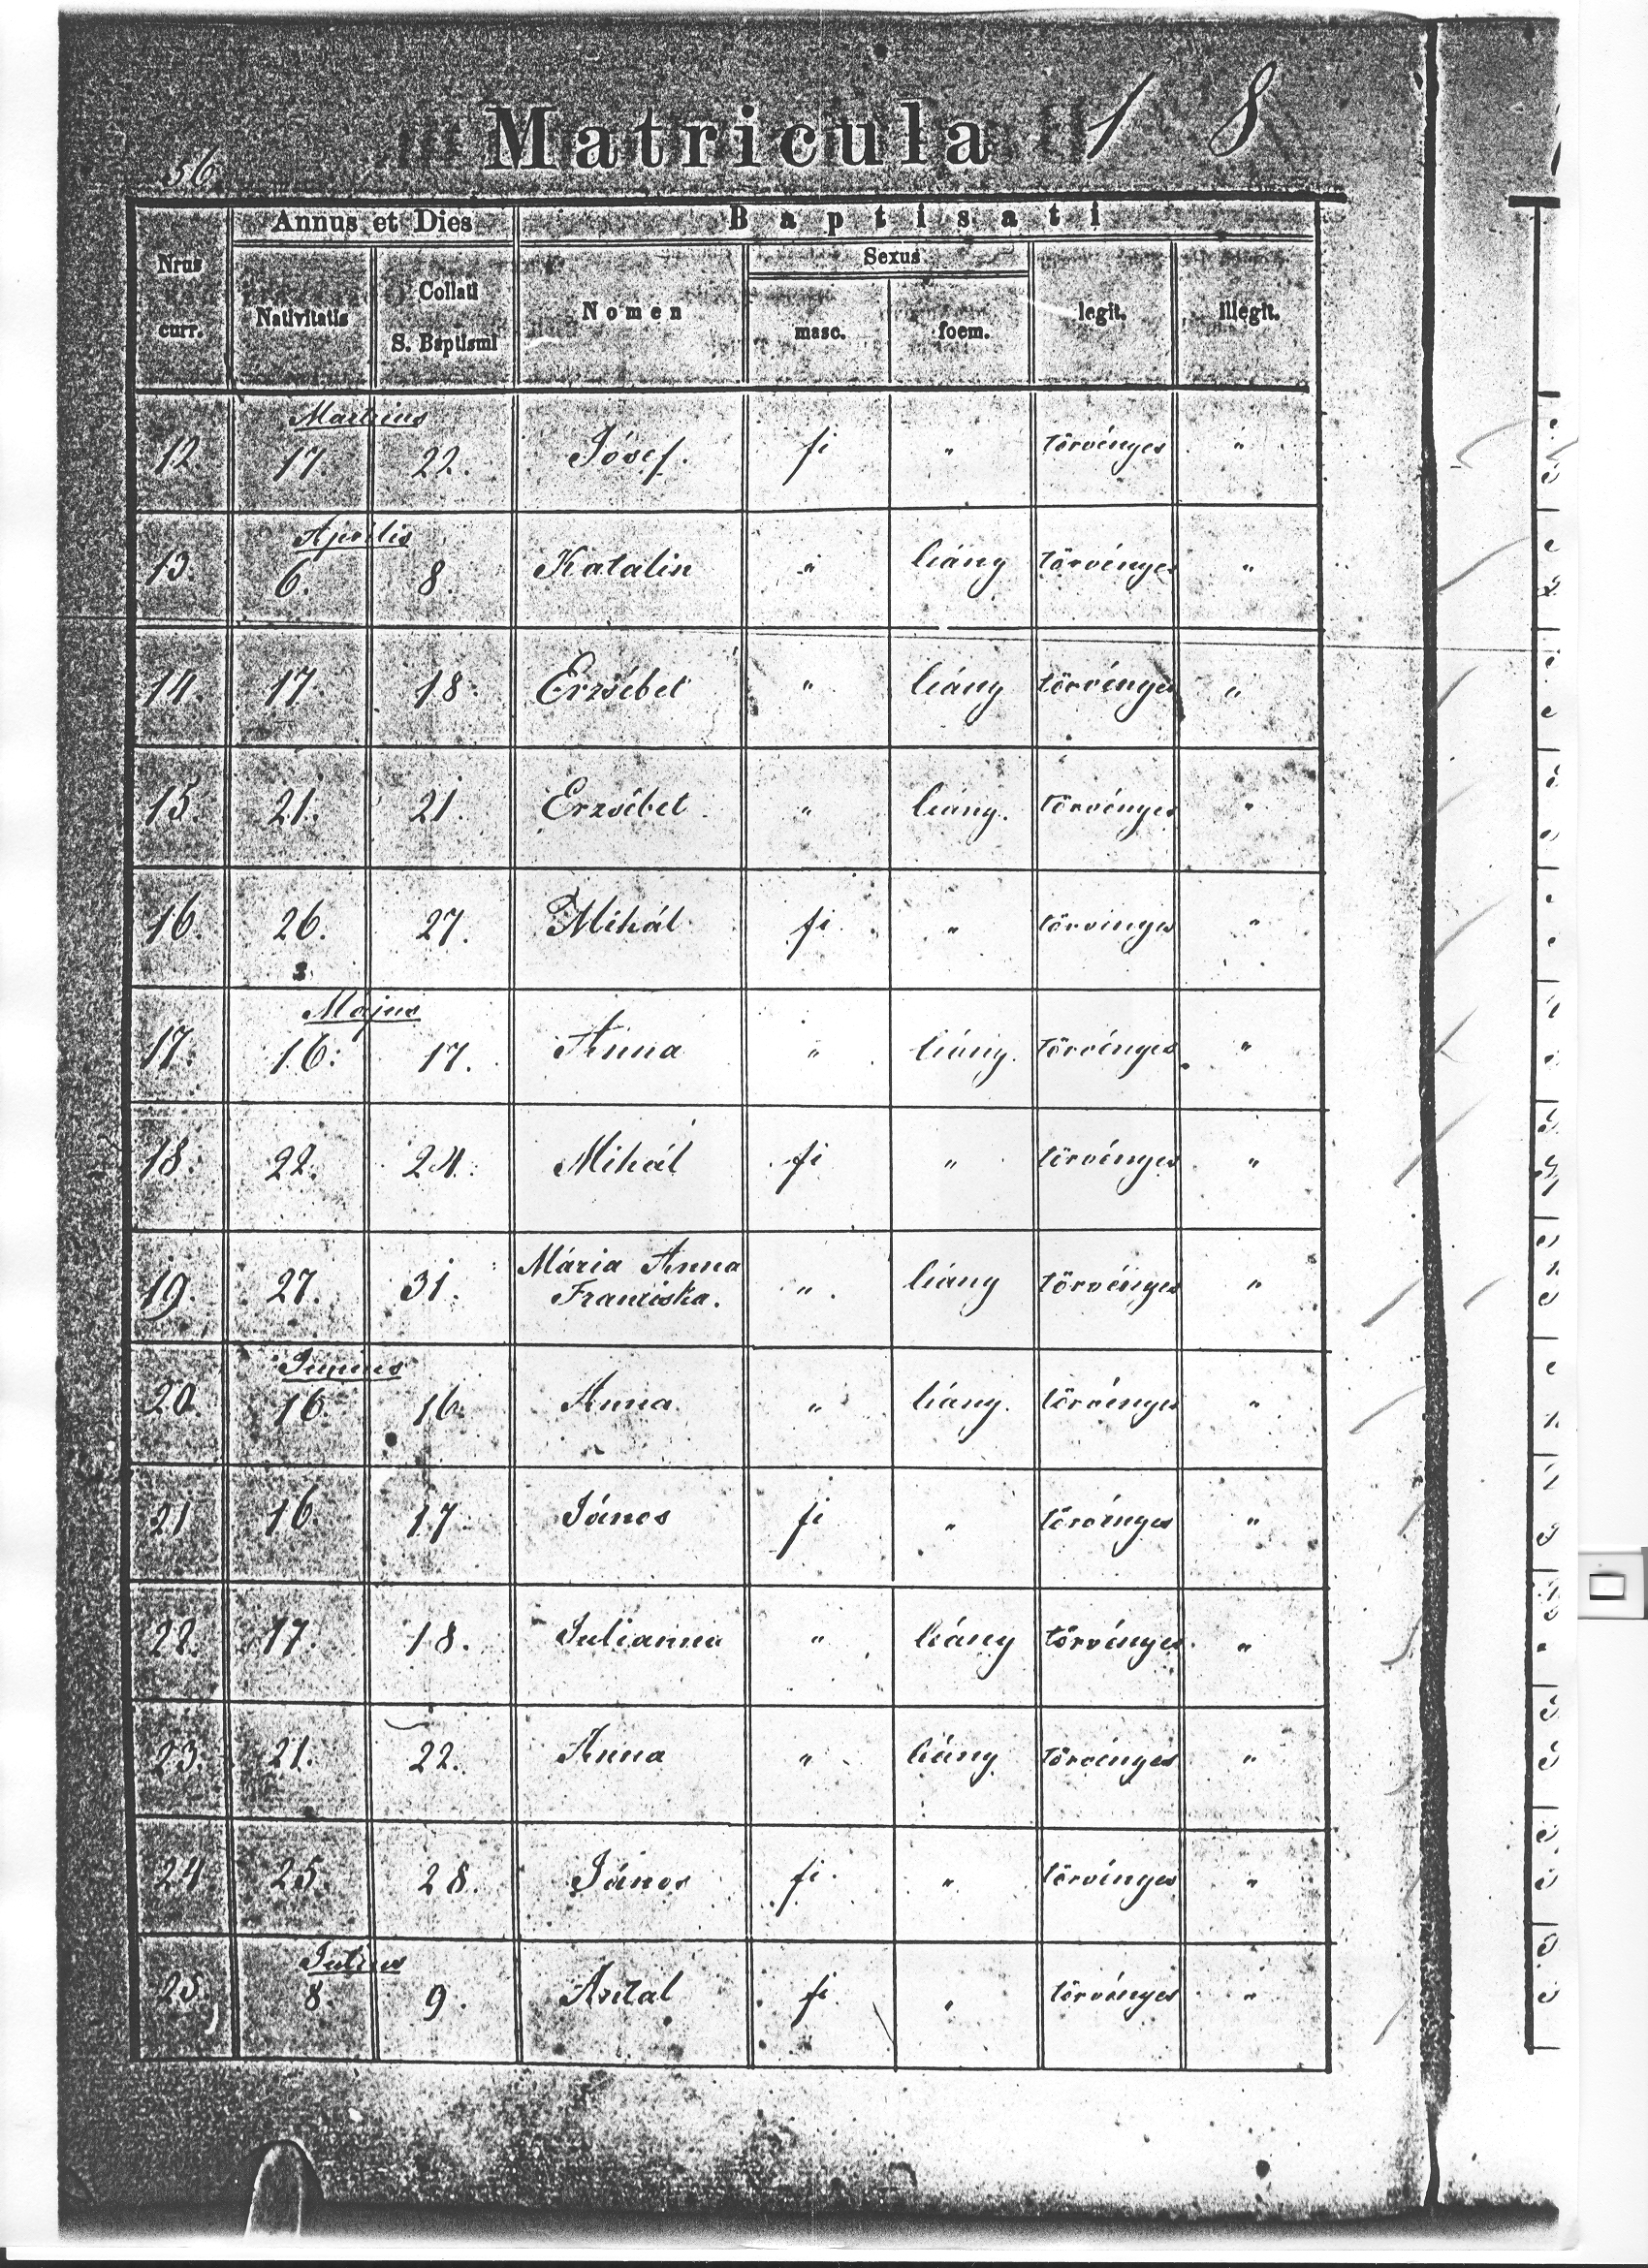 56.
Matricula 1 8
Annus et Dies Baptisati
Nrus curr. Nativitatis Collati S. Baptismi Nomen Sexus masc. foem. legit. illegit.
Martius
12. 17. 22. József. fi " törvényes "
Aprilis
13. 6. 8. Katalin " leány törvényes "
14. 17. 18. Erzsébet " leány törvényes "
15. 21. 21. Erzsébet " leány. törvényes "
16. 26. 27. Mihál fi " törvényes "
Majus
17. 16. 17. Anna " leány. törvényes "
18. 22. 24. Mihál fi " törvényes "
19. 27. 31. Mária Anna " leány törvényes "
Franciska.
Junius
20. 16. 16. Anna " leány. törvényes "
21 16. 17. János fi " törvényes "
22. 17. 18. Julianna " leány törvényes "
23. 21. 22. Anna " leány törvényes "
24 25. 28. János fi. " törvényes "
Julius
25 8. 9. Antal fi " törvényes "